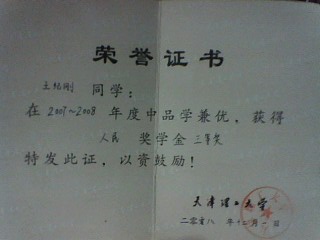 荣誉证书
同学:
在2007~2008年度中品学兼优,获得
人民奖学金三等奖
特发此证,以资鼓励!
天津理工大学
二零零八年十二月一日